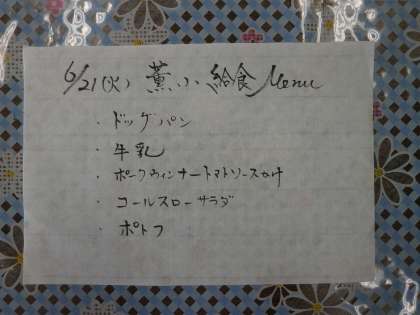 6/21(火) 薫小 給食 Menu
・ドッグパン
・牛乳
・ポークウィンナートマトソースかけ
・コールスローサラダ
・ポトフ